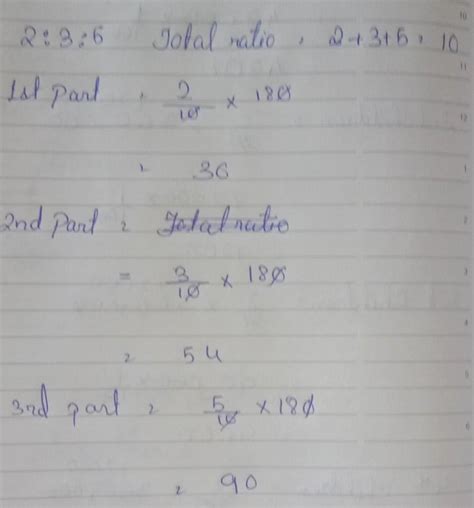 2:3:5 Total ratio = 2+3+5 = 10
1st part = 2/10 × 180
= 36
2nd part = Total ratio
= 3/10 × 180
= 54
3rd part = 5/10 × 180
= 90